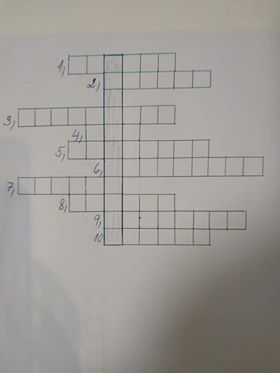 1,
2,
3,
4,
5,
6,
7,
8,
9,
10